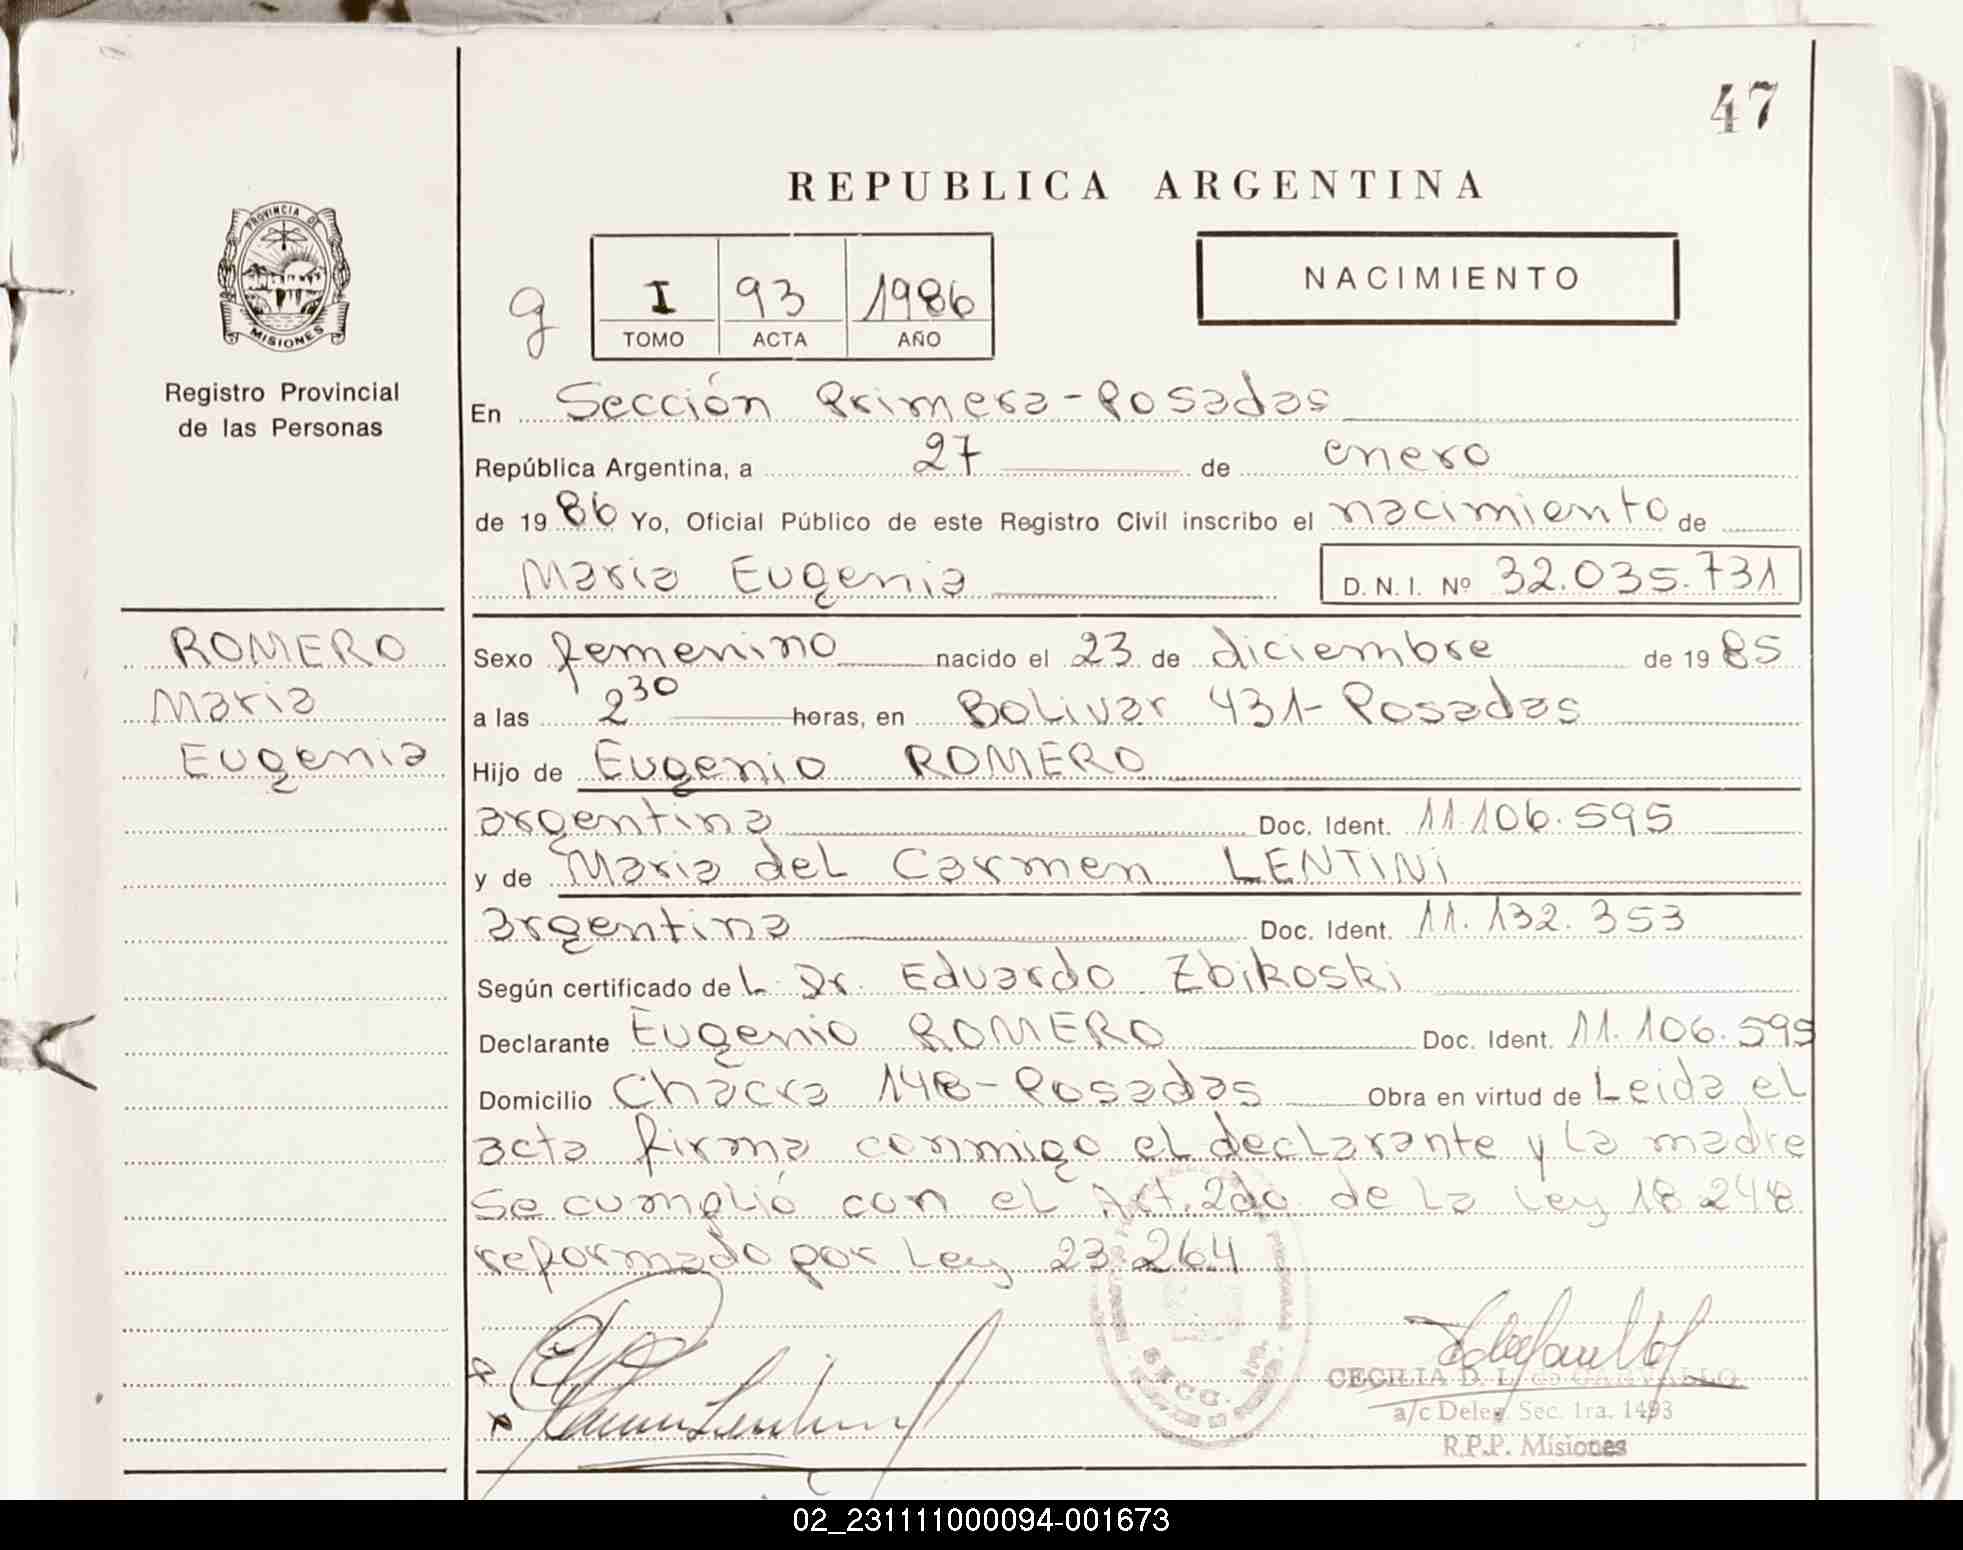 47
REPUBLICA ARGENTINA
PROVINCIA DE
MISIONES
Registro Provincial
de las Personas
g
I 93 1986
TOMO ACTA AÑO
NACIMIENTO
En Sección Primera-Posadas
República Argentina, a 27 de enero
de 1986 Yo, Oficial Público de este Registro Civil inscribo el nacimiento de
Maria Eugenia D.N.I. Nº 32.035.731
ROMERO
Maria
Eugenia
Sexo femenino nacido el 23 de diciembre de 1985
a las 2 30 horas, en Bolivar 431-Posadas
Hijo de Eugenio ROMERO
argentina Doc. Ident. 11.106.595
y de Maria del Carmen LENTINI
argentina Doc. Ident. 11.132.353
Según certificado del Dr. Eduardo Zbikoski
Declarante Eugenio ROMERO Doc. Ident. 11.106.595
Domicilio Chacra 148-Posadas Obra en virtud de Leida el
acta firma conmigo el declarante y la madre
se cumplió con el Art. 2do de la Ley 18.248
reformado por Ley 23.264
SECC. 1ra.
CECILIA D. L. de CARVALLO
a/c Deleg. Sec. 1ra. 1493
R.P.P. Misiones
02_231111000094-001673